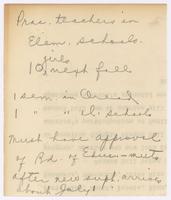 Prac. teachers in
Elem. schools.
girls
10 next fall
1 sem. in
1 " " El. schools
Must have approval
of Bd. of Educ.—meets
after new supt. arrives
about July 1